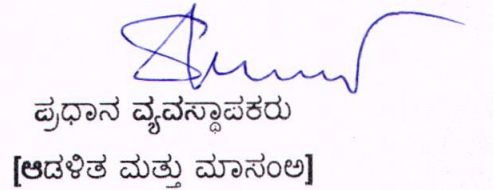 ಪ್ರಧಾನ ವ್ಯವಸ್ಥಾಪಕರು
[ಆಡಳಿತ ಮತ್ತು ಮಾಸಂಅ]